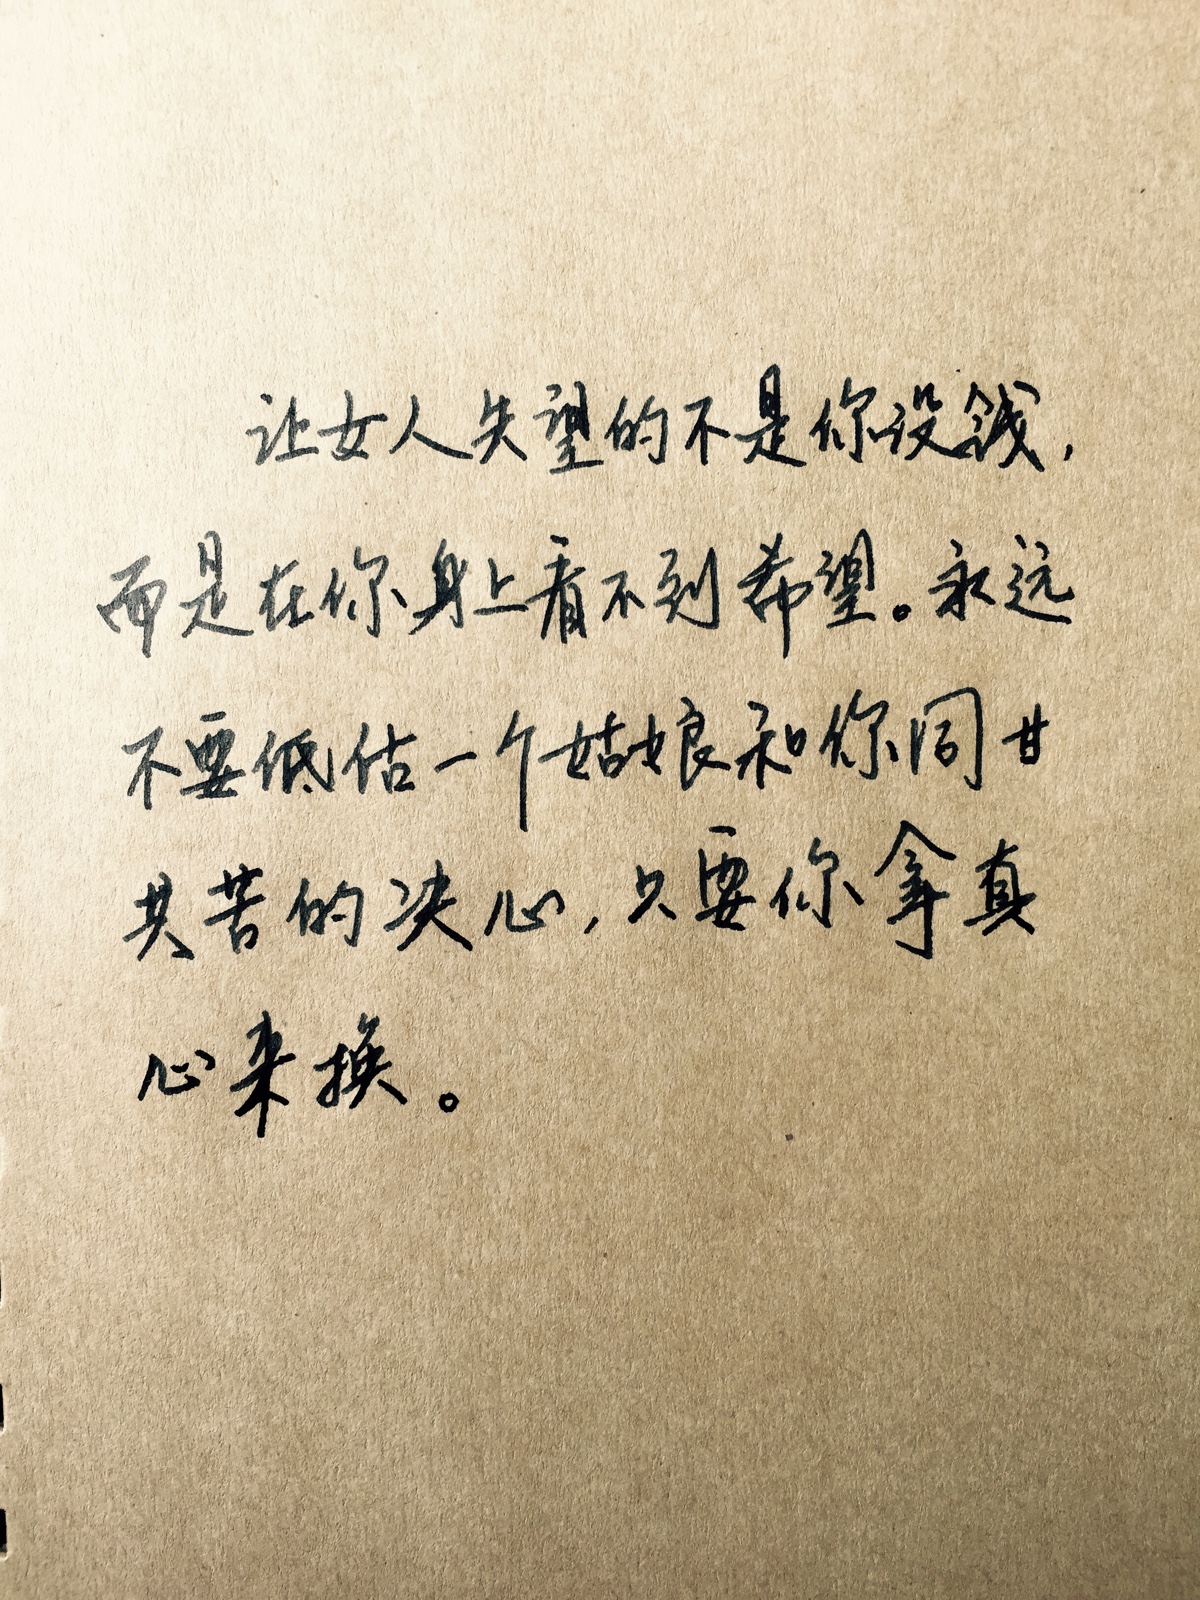 让女人失望的不是你没钱，
而是在你身上看不到希望。永远
不要低估一个姑娘和你同甘
共苦的决心，只要你拿真
心来换。